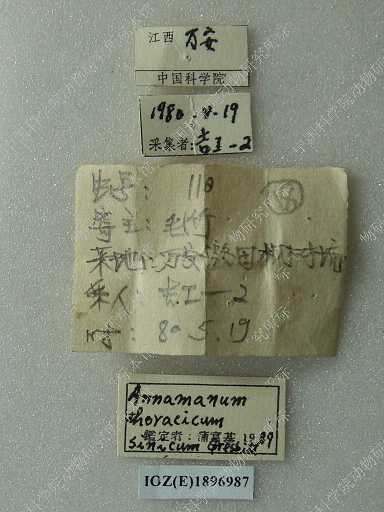 江西 万安
中国科学院
1980.V.19
采集者:吉工-2
号: 110 (38)
寄主: 毛竹
采地:万安
采人: 吉工—2
80.5.19
Annamanum
thoracicum
鉴定者:蒲富基 1989
sinicum Gressitt
IGZ(E)1896987